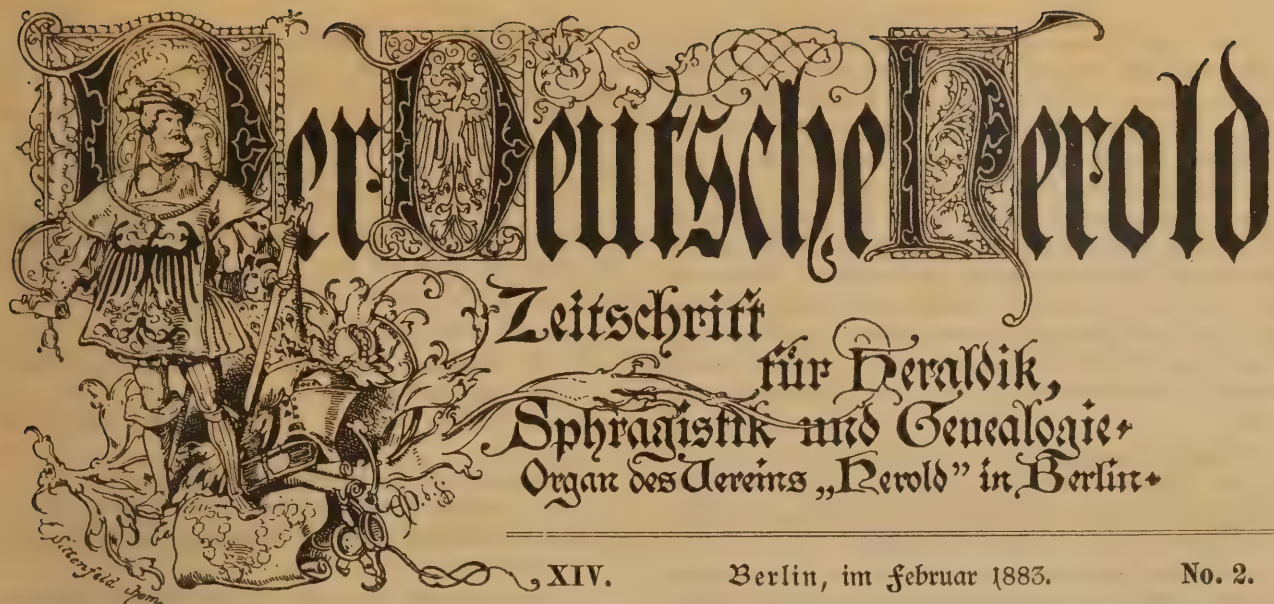 Der Deutsche Herold
Zeitschrift
für Heraldik,
Sphragistik und Genealogie.
Organ des Vereins „Herold" in Berlin.
XIV. Berlin, im Februar 1883. No. 2.